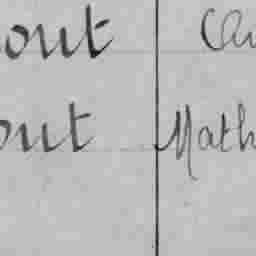 out
out Math